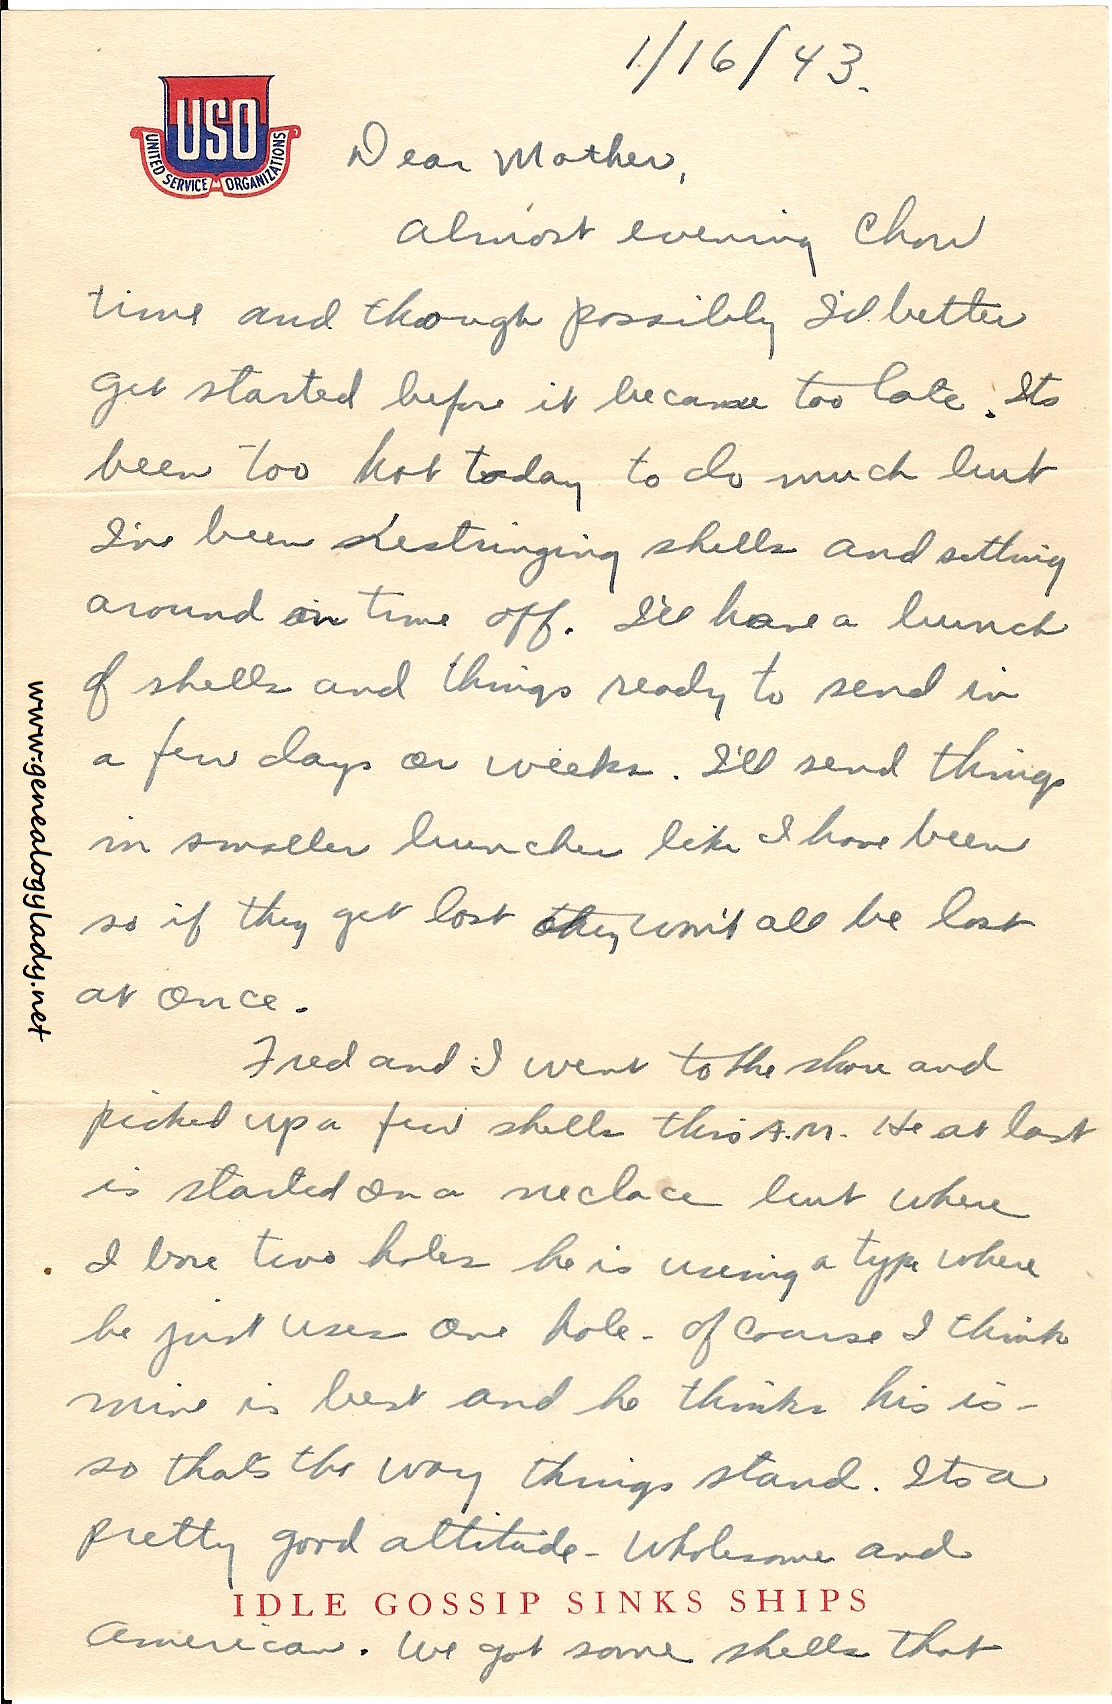 1/16/43.
USO
UNITED SERVICE ORGANIZATIONS
Dear Mother,
Almost evening chow
time and though possibly I'd better
get started before it became too late. Its
been too hot today to do much but
I've been restringing shells and setting
around on time off. I'll have a bunch
of shells and things ready to send in
a few days or weeks. I'll send things
in smaller bunches like I have been
so if they get lost they won't all be lost
at once.
Fred and I went to the shore and
picked up a few shells this A.M. He at last
is started on a neclace but where
I bore two holes he is useing a type where
he just uses one hole - of course I think
mine is best and he thinks his is -
so thats the way things stand. Its a
pretty good attitude - wholesome and
IDLE GOSSIP SINKS SHIPS
American. We got some shells that
www.genealogylady.net